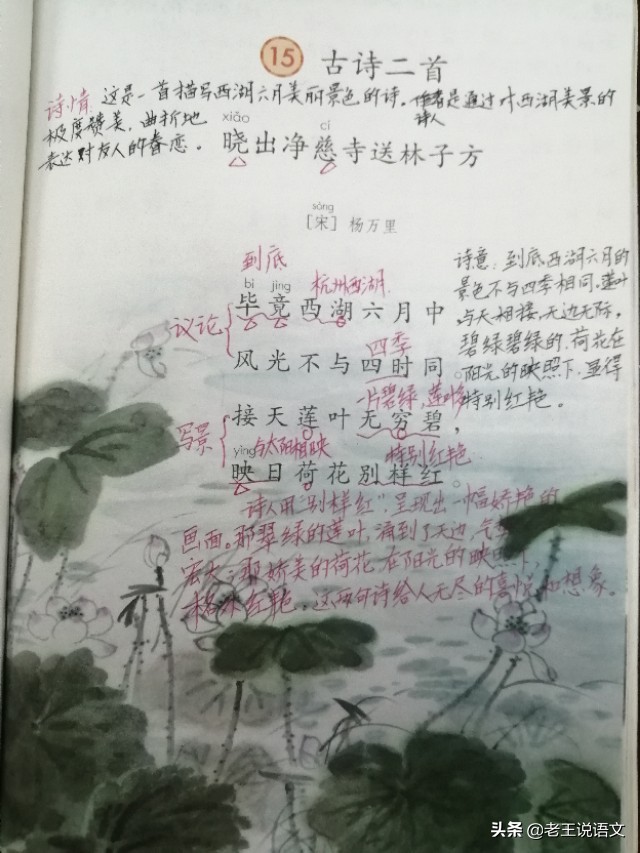 15 古诗二首
诗情 这是一首描写西湖六月美丽景色的诗。作者是通过对西湖美景的
诗人
极度赞美,曲折地
表达对友人的眷恋。
xiǎo cí
晓出净慈寺送林子方
sòng
[宋] 杨万里
到底
杭州西湖
bì jìng
议论 毕竟西湖六月中
四季
风光不与四时同。
一片碧绿 莲叶
写景 接天莲叶无穷碧,
yìng 与太阳相映 特别红艳
映日荷花别样红。
诗意:到底西湖六月的
景色不与四季相同,莲叶
与天相接,无边无际,
碧绿碧绿的,荷花在
阳光的映照下,显得
特别红艳。
诗人用“别样红”,呈现出一幅娇艳的
画面。那翠绿的莲叶,涌到了天边,气势
宏大;那娇美的荷花,在阳光的映照下,
格外红艳。这两句诗给人无尽的喜悦和想象。
头条 @老王说语文